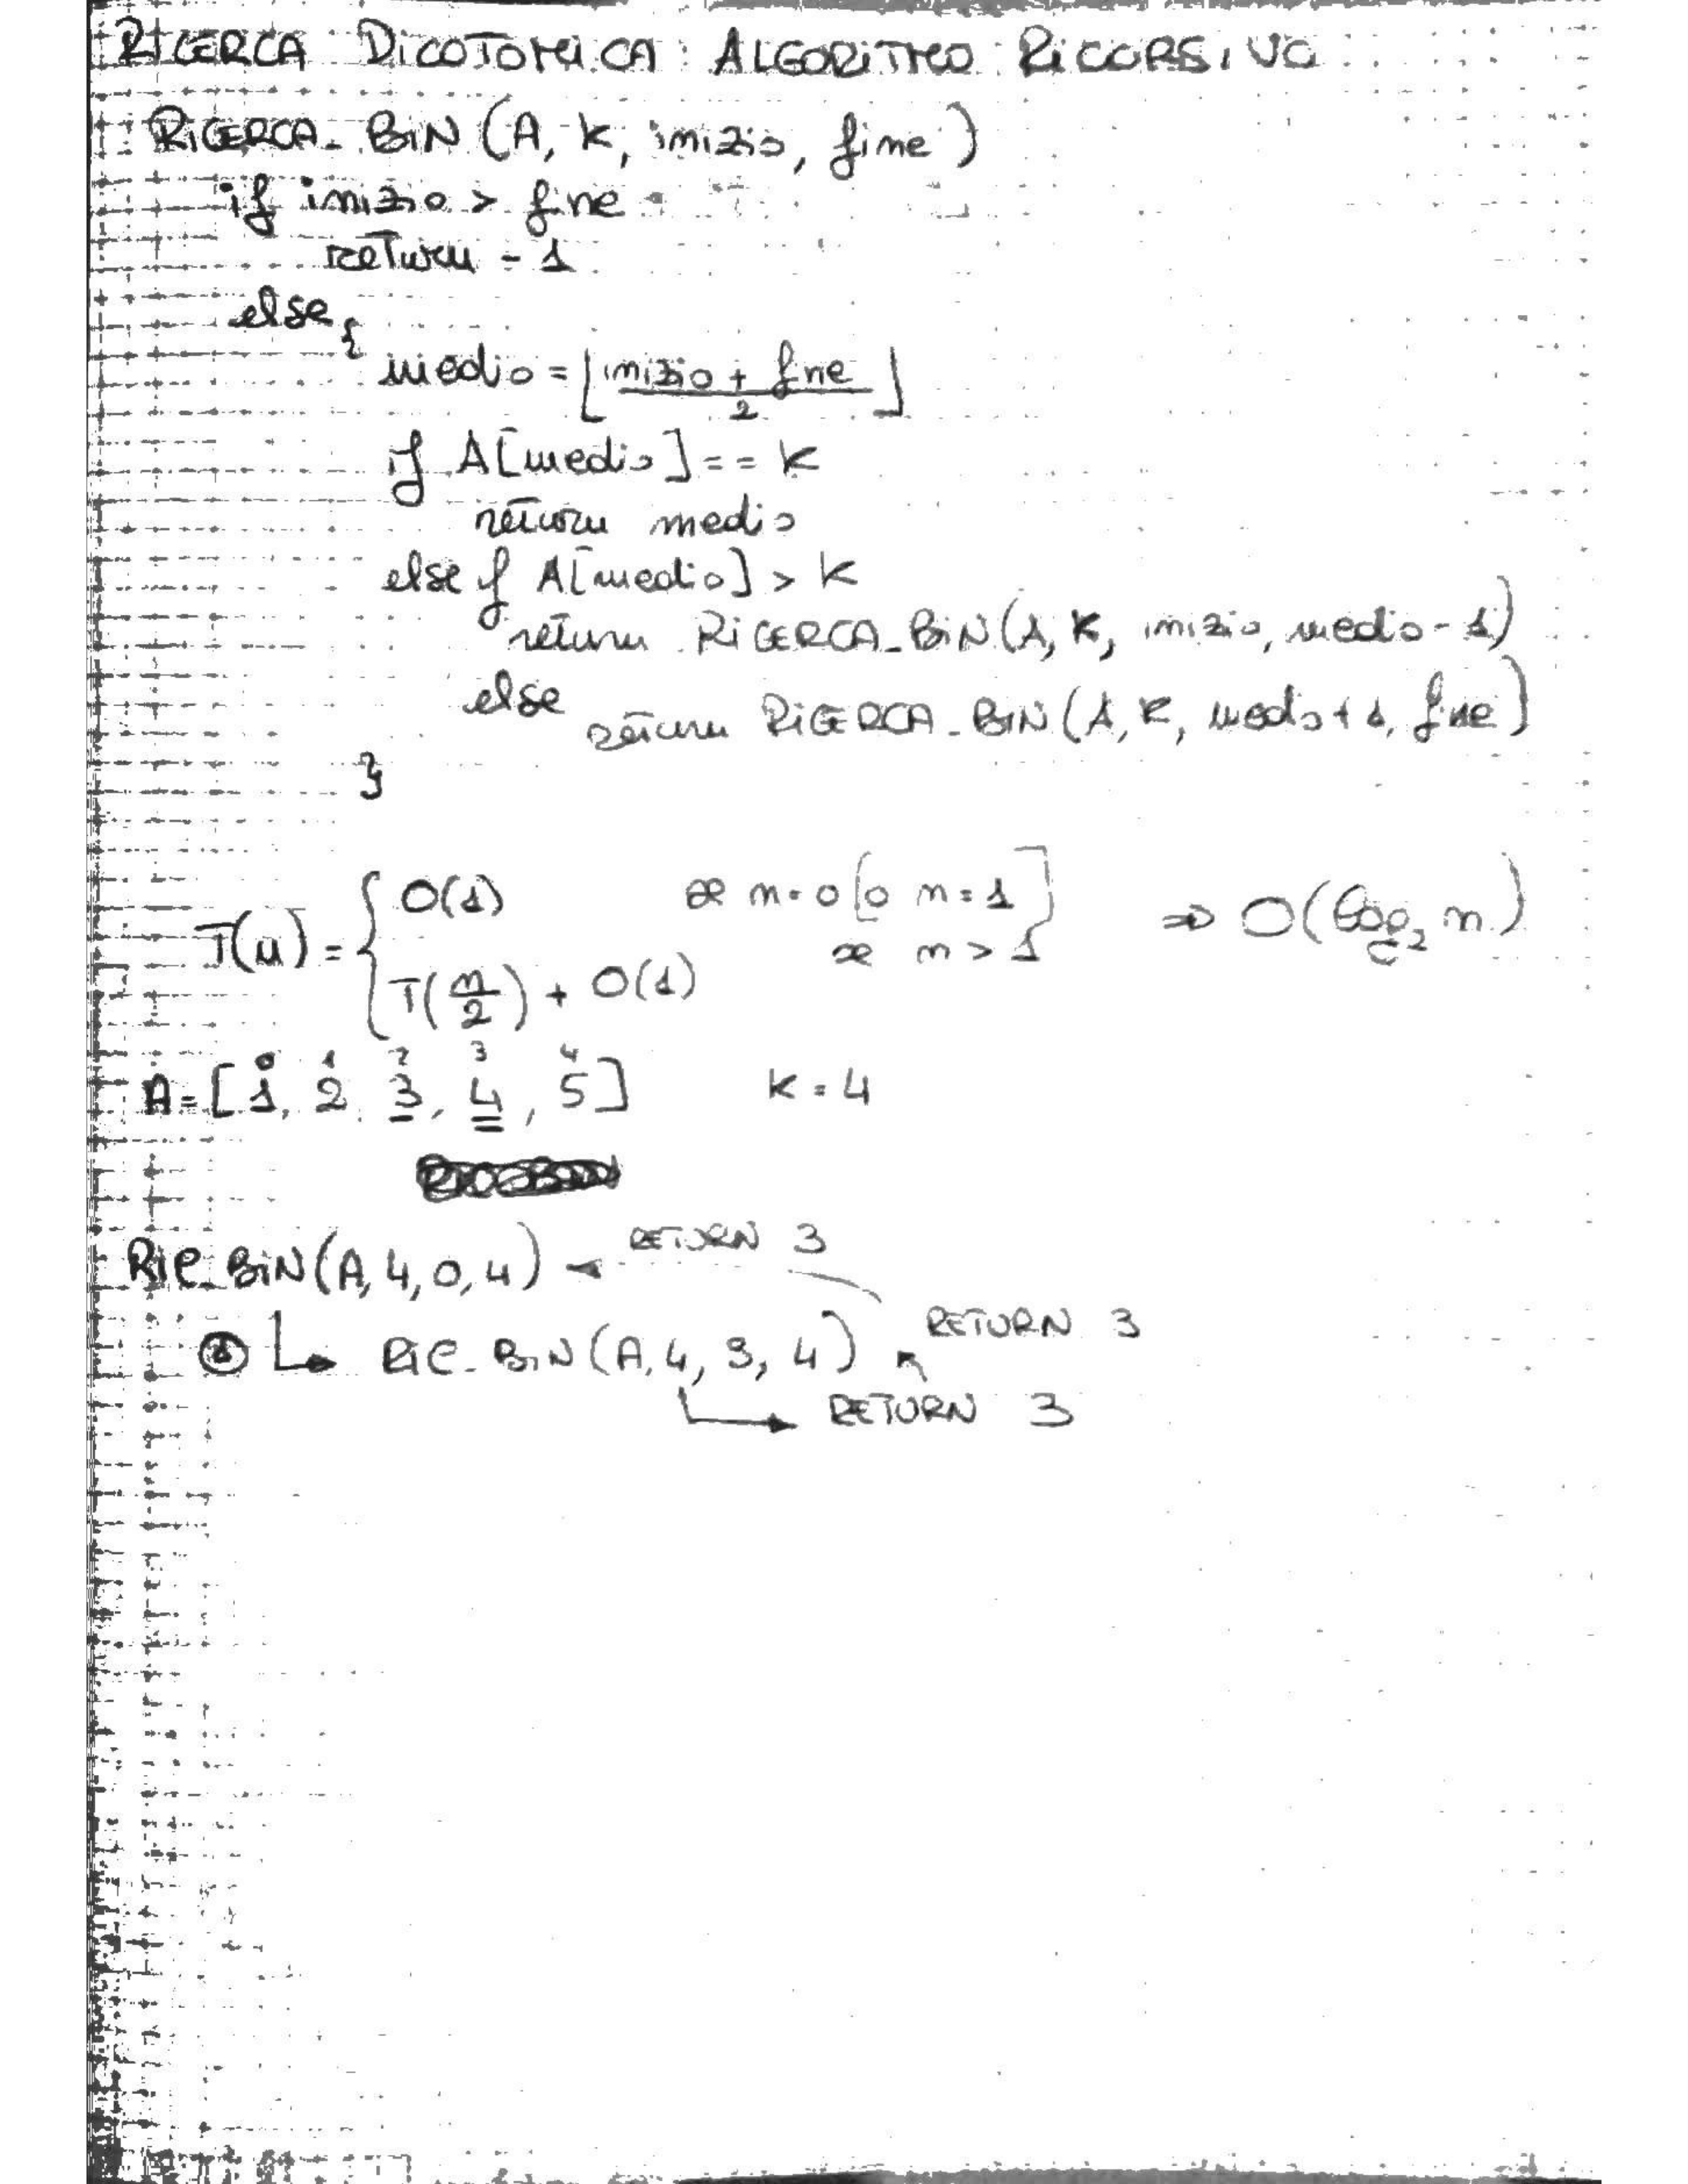 RICERCA DICOTOMICA: ALGORITMO RICORSIVO
RICERCA_BIN (A, K, inizio, fine)
if inizio > fine
return -1
else {
medio = ⌊(inizio + fine)/2⌋
if A[medio] == K
return medio
else if A[medio] > K
return RICERCA_BIN (A, K, inizio, medio-1)
else
return RICERCA_BIN (A, K, medio+1, fine)
}
T(n) = { O(1) se n=0 [o n=1]
T(n/2) + O(1) se n > 1 ⇒ O(log₂ n)
0 1 2 3 4
A = [1, 2, 3, 4, 5] K = 4
RIC_BIN (A, 4, 0, 4) ← RETURN 3
② ↳ RIC_BIN (A, 4, 3, 4) RETURN 3
↳ RETURN 3